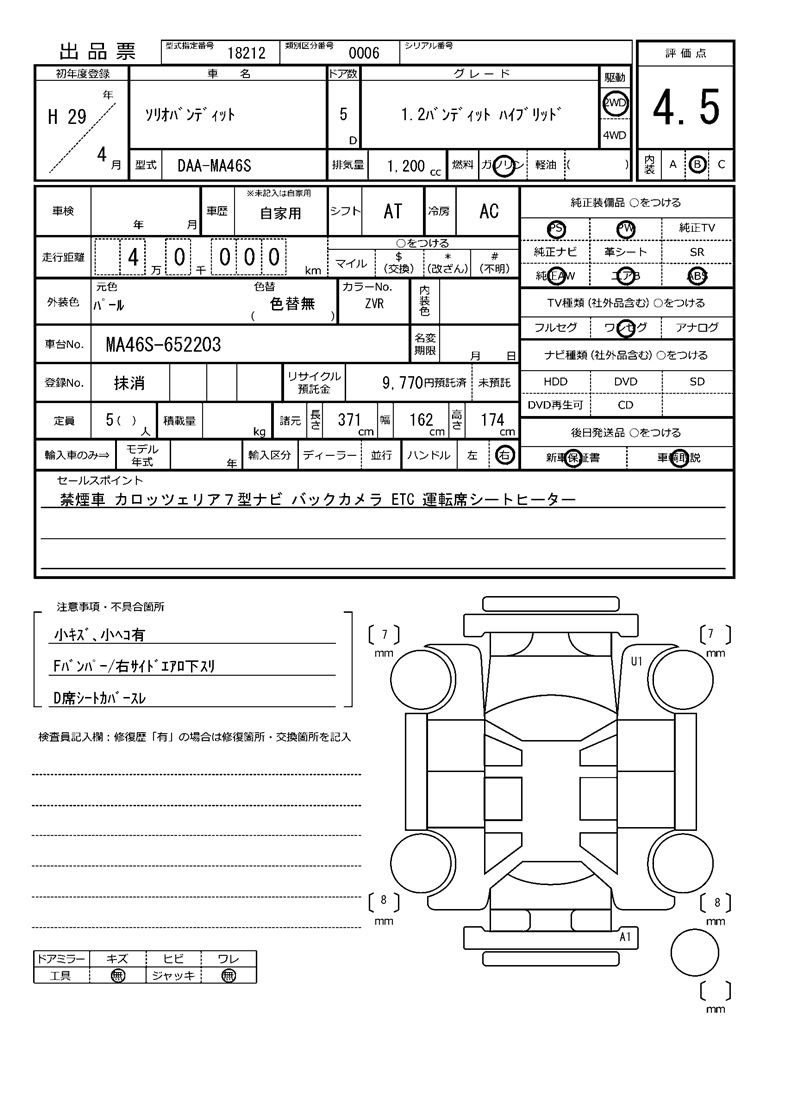 出品票 型式指定番号 18212 類別区分番号 0006 シリアル番号
評価点
4.5
初年度登録 車名 ドア数 グレード 駆動
H 29 年 4 月
ソリオバンディット 5 D 1.2バンディット ハイブリッド 2WD
4WD
型式 DAA-MA46S 排気量 1,200 cc 燃料 ガソリン 軽油 ( ) 内装 A B C
車検 年 月 車歴 ※未記入は自家用 自家用 シフト AT 冷房 AC
純正装備品 ○をつける
PS PW 純正TV
純正ナビ 革シート SR
純正AW エアB ABS
走行距離 4 万 0 千 0 0 0 km
○をつける
マイル $ (交換) * (改ざん) # (不明)
外装色 元色 パール 色替 ( 色替無 ) カラーNo. ZVR 内装色
TV種類(社外品含む)○をつける
フルセグ ワンセグ アナログ
車台No. MA46S-652203 名変期限 月 日
ナビ種類(社外品含む)○をつける
HDD DVD SD
DVD再生可 CD
登録No. 抹消 リサイクル預託金 9,770円預託済 未預託
定員 5( ) 人 積載量 kg 諸元 長さ 371 cm 幅 162 cm 高さ 174 cm
後日発送品 ○をつける
新車保証書 車輌取説
輸入車のみ⇒ モデル年式 年 輸入区分 ディーラー 並行 ハンドル 左 右
セールスポイント
禁煙車 カロッツェリア7型ナビ バックカメラ ETC 運転席シートヒーター
注意事項・不具合箇所
小キズ、小ヘコ有
Fバンパー/右サイドエアロ下スリ
D席シートカバースレ
検査員記入欄:修復歴「有」の場合は修復箇所・交換箇所を記入
7 mm
7 mm
U1
8 mm
8 mm
A1
mm
ドアミラー キズ ヒビ ワレ
工具 無 ジャッキ 無